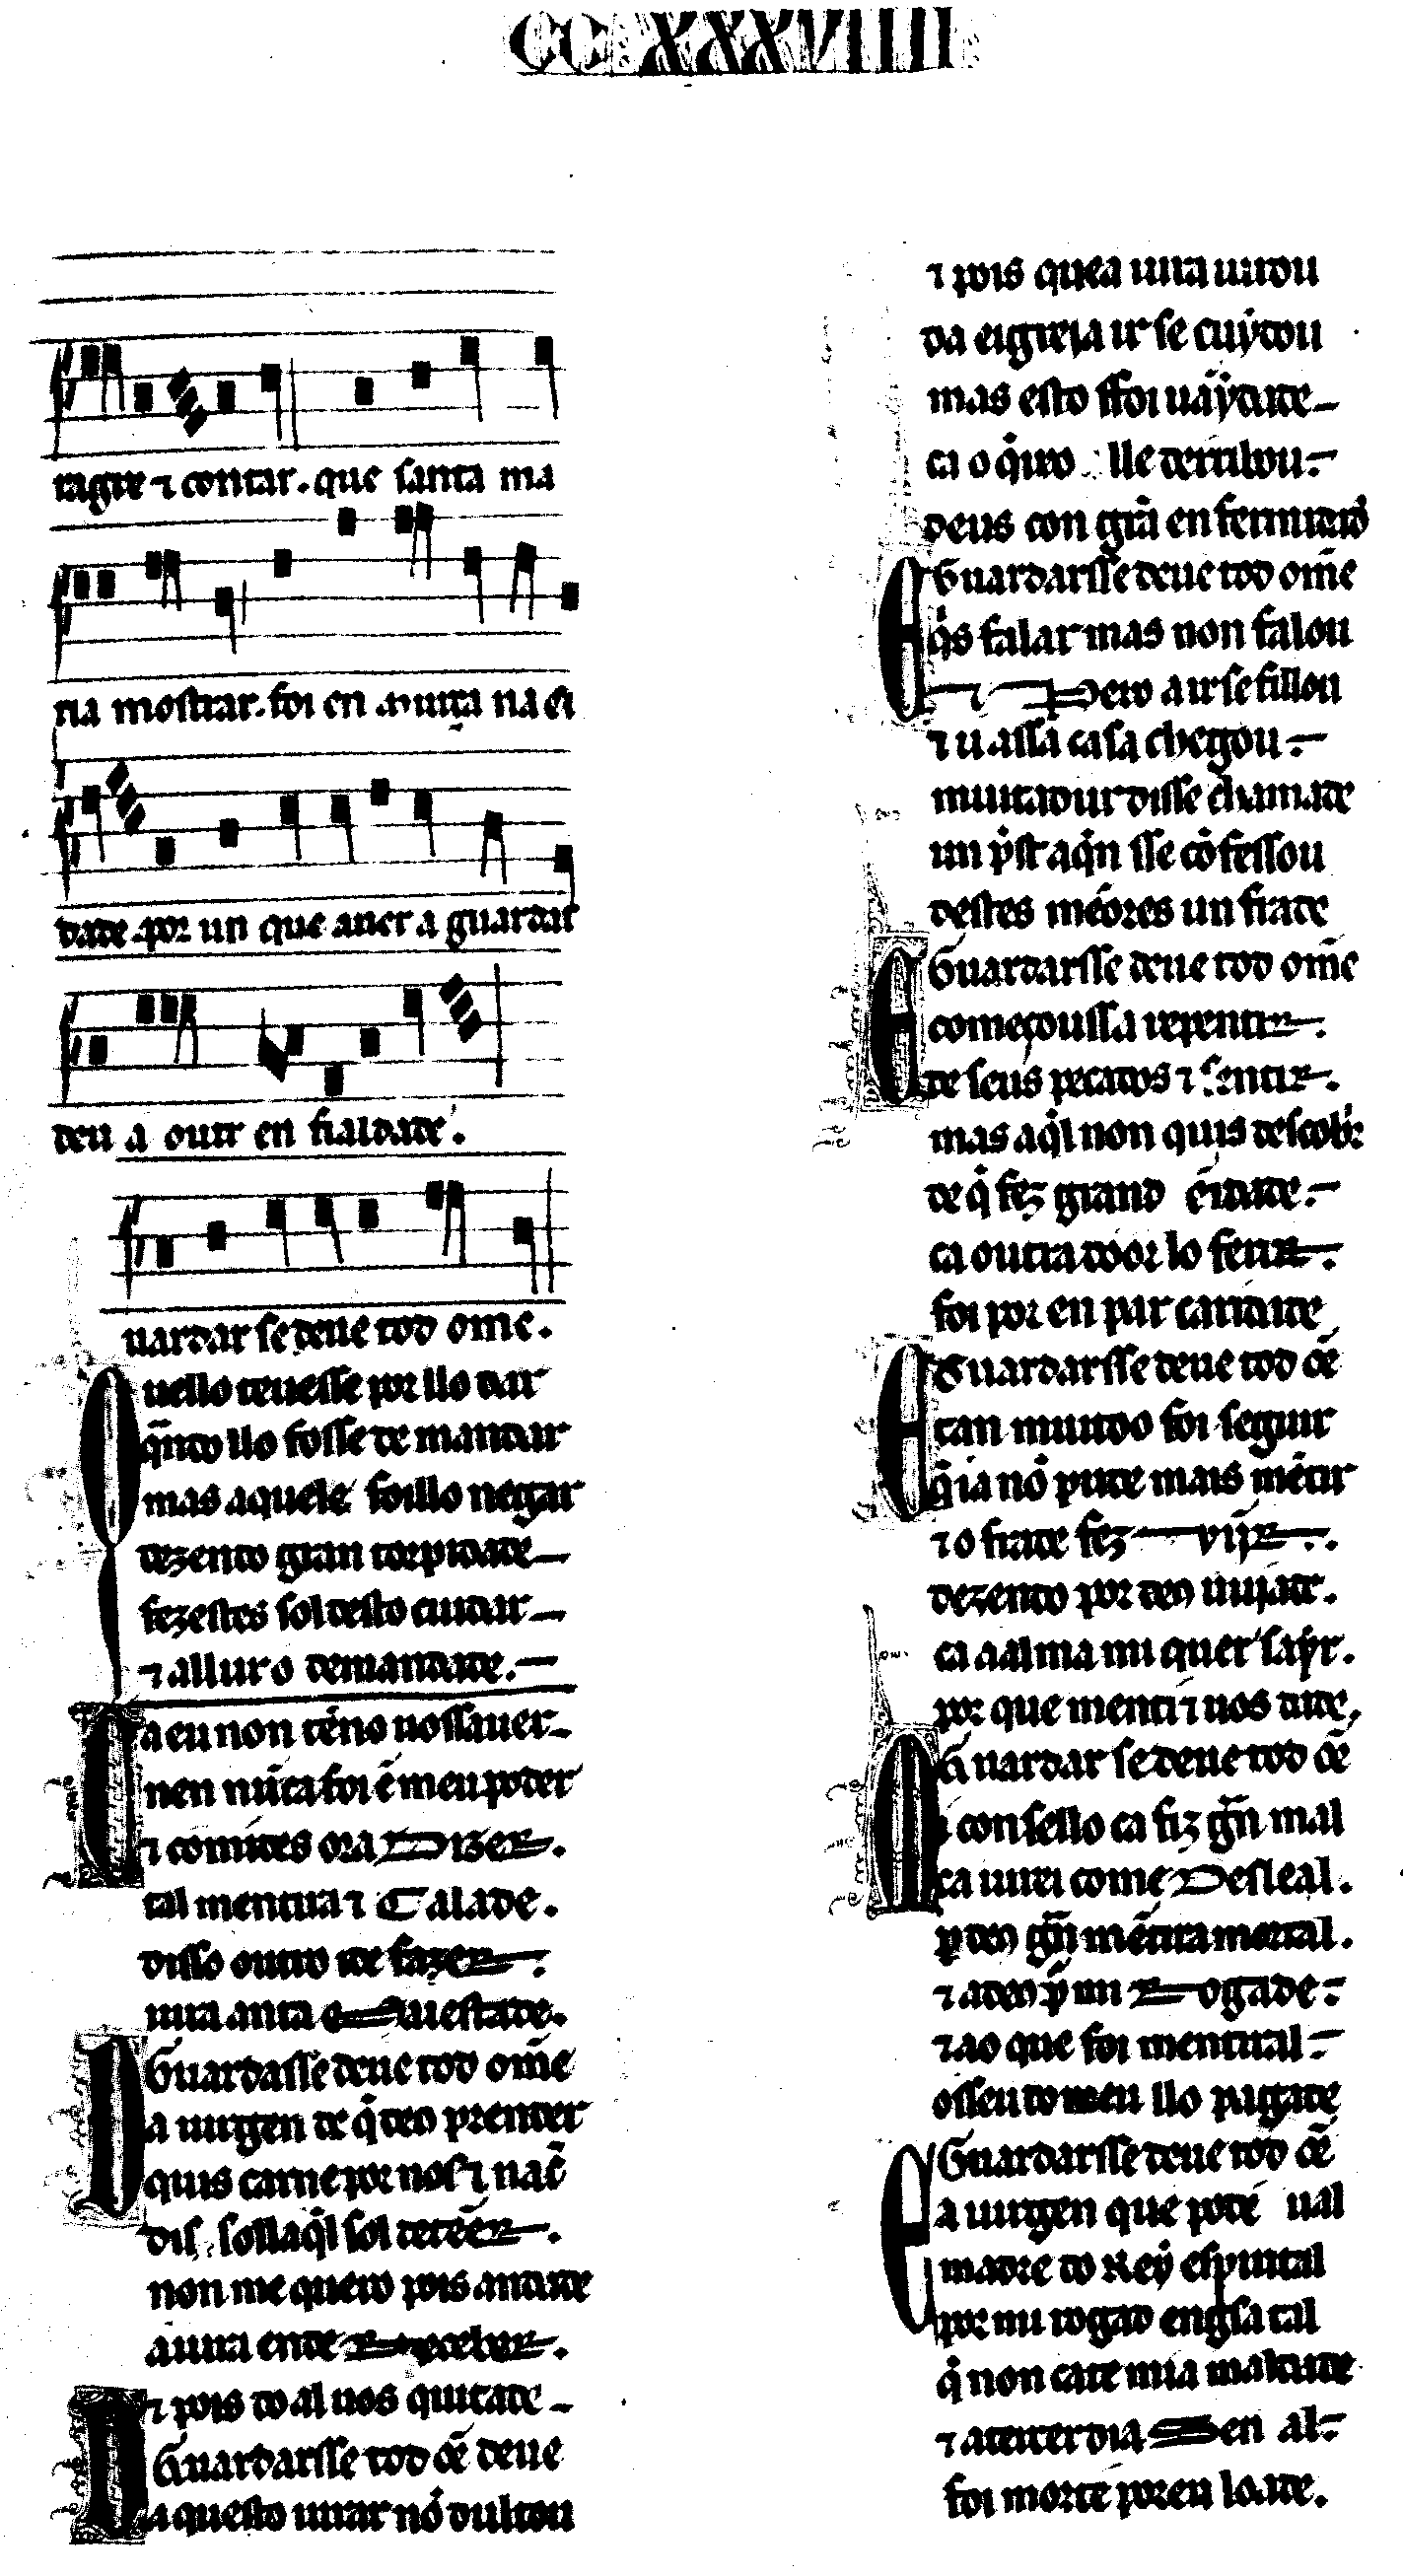 CCXXXVIIII
ragre ⁊ contar. que santa ma
ria mostrar. foi en murça na ci
dade. por un que auer a guardar
deu a outr en fialdade.
uardar se deue tod ome.
uello teuesse por llo dar
q̄ndo llo fosse demandar
mas aquele foillo negar
dezendo gran torpidade
fezestes sol desto cuidar
⁊ allur o demandade.
a eu non téno uossauer
nen nũca foi ẽ meu poder
⁊ comides ora dizer.
tal mentira ⁊ Calade.
disso outro ide fazer.
uira anta questade.
Guardasse deue tod om̃e
a uirgen de q̇ deus prender
quis carne por nos ⁊ nac̃
dis sollaq̇l sol deteer.
non me quero pois andade
a iura ende receber.
⁊ pois do al uos quitade
Guardarsse tod oẽ deue
aquesto iurar nõ dultou
⁊ pois que a iura iurou
da eigreia ir se cuydou
mas esto ffoi uaydade
ca o q̇uro lle derribou.
deus con grã enfermidad
Guardarsse deue tod om̃e
q̇s falar mas non falou
Pero a ir se fillou
⁊ u assa casa chegou.
muit adur disse chamade
un p̄st aq̇n sse cõfessou
destes mẽores un frade
Guardarsse deue tod om̃e
começoussa repentir.
de seus pecados ⁊ sentir.
mas aq̇l non quis descobr̃
de q̇ fez grand eridade.
ca outra door lo ferir.
foi por en par caridade
Guardarsse deue tod oẽ
tan muito foi seguir
q̇ ia nõ pude mais mẽtir
⁊ o frade fez vijr.
dezendo por deus uijade.
ca a alma mi quer sayr.
por que menti ⁊ uos dade.
Guardar se deue tod oẽ
i consello ca fiz grã mal
ca iurei come Desleal.
por deus grã mẽtira mortal.
⁊ a deus por mi Rogade.
⁊ ao que foi mentiral
osseu do meu llo pagade
Guardarsse deue tod oẽ
a uirgen que pode ual
madre do Rey espirital
por mi rogad en gʼsa tal
q̇ non cate mia maldade
⁊ a tercer dia Sen al.
foi morte por en loade.